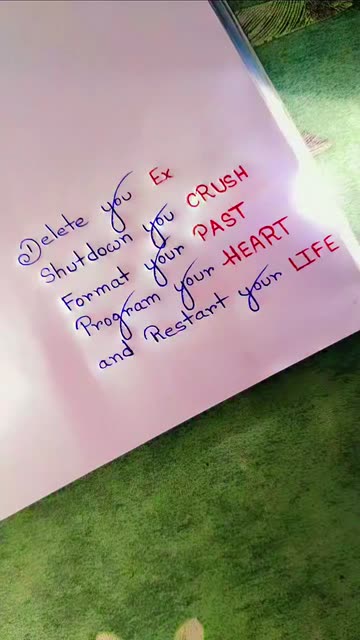 Delete you Ex
Shutdown you CRUSH
Format your PAST
Program your HEART
and Restart your LIFE